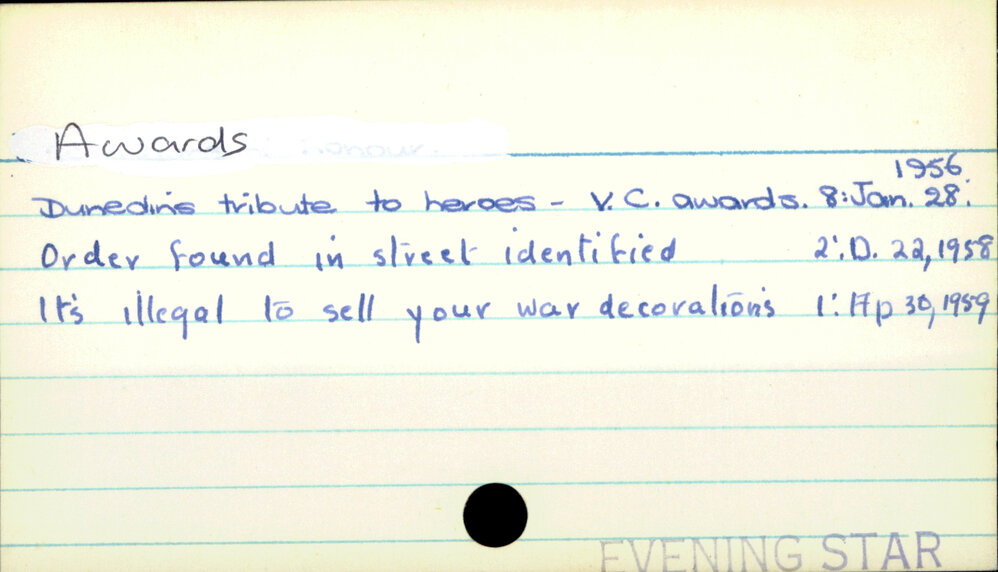 Awards
1956.
Dunedin's tribute to heroes - V.C. awards. 8: Jan. 28.
Order found in street identified 2: D. 22, 1958
It's illegal to sell your war decorations 1: Ap 30, 1959
EVENING STAR